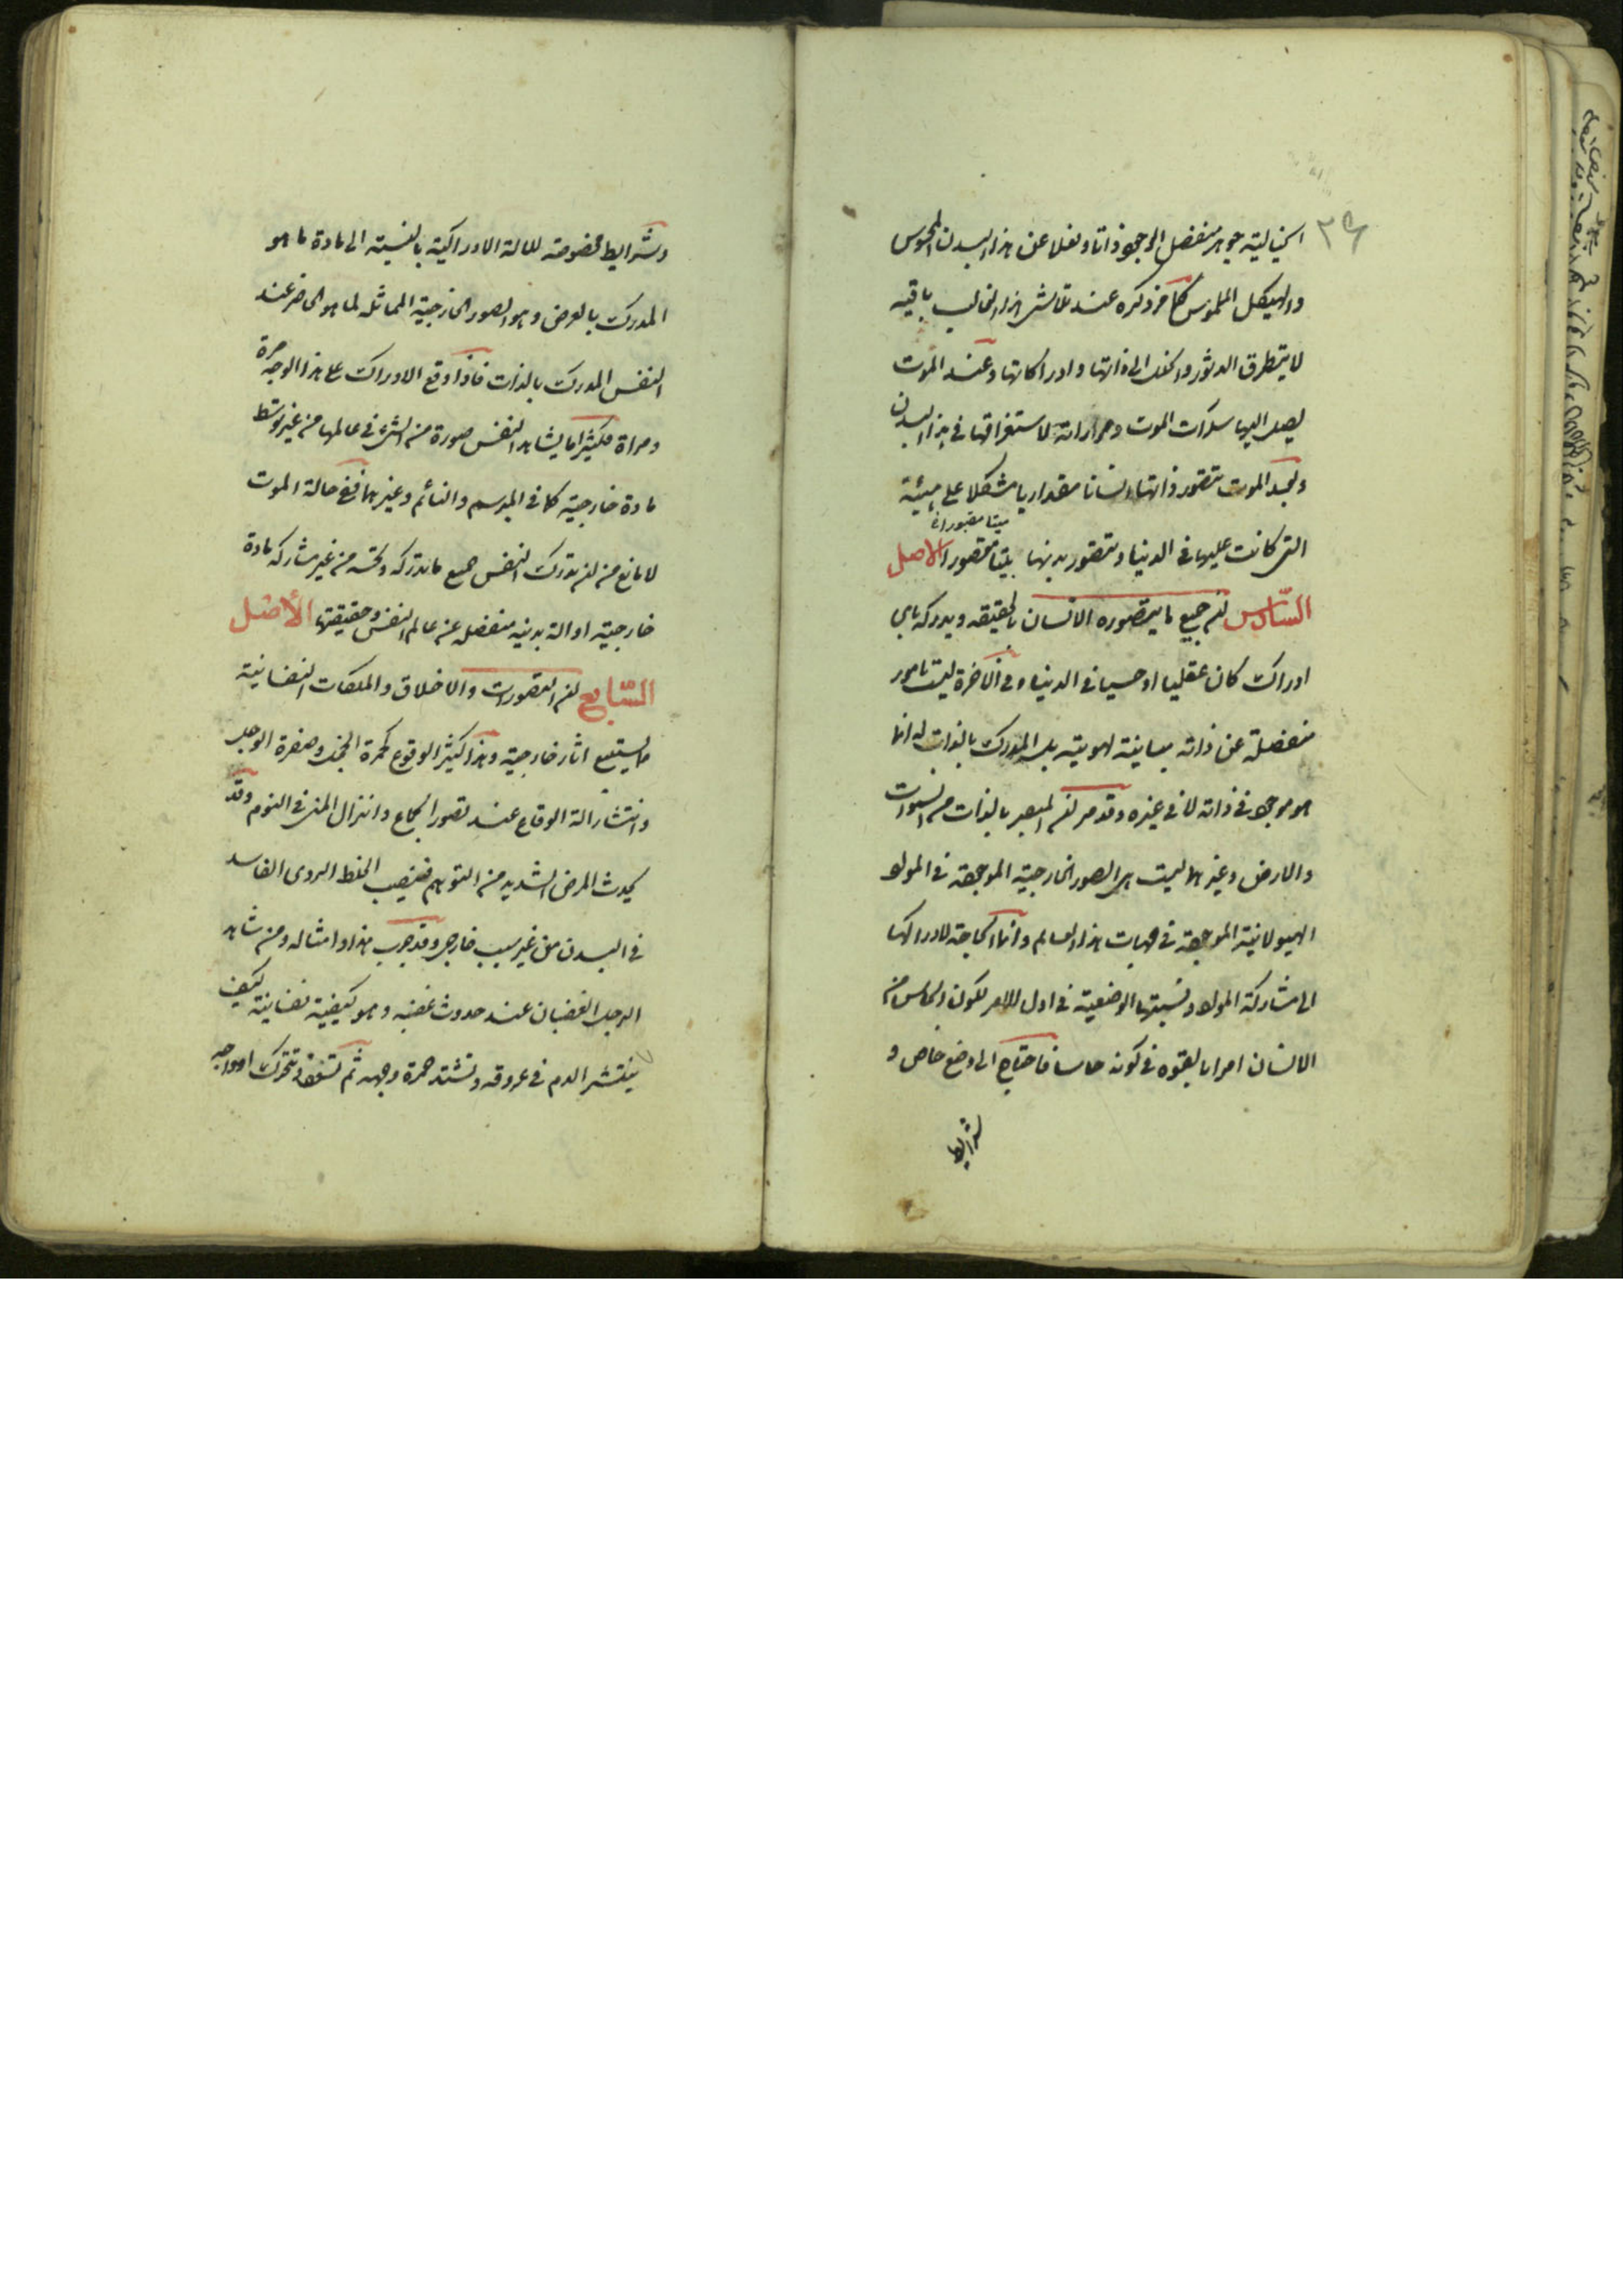 ٣٩
الخيالية جوهر منفصل الوجود ذاتا وفعلا عن هذا البدن المحسوس
والهيكل الملموس كما مر ذكره عند تلاشى هذا القالب باقيه
لا يتطرق الدثور والخلل الى ذاتها وادراكاتها وعند الموت
يصل اليها سكرات الموت ومراراته لاستغراقها في هذا البدن
وبعد الموت تتصور ذاتها انسانا مقداريا مشكلا على هيئة
التى كانت عليها فى الدنيا وتتصور بدنها ميتا مقبورا الاصل
ميتا مقبورا
السّادس ان جميع ما يتصوره الانسان بالحقيقه ويدركه باى
ادراك كان عقليا او حسيا فى الدنيا او فى الآخرة ليست بامور
منفصلة عن ذاته مباينة لهويته بل المدرك بالذات له انما
هو موجود فى ذاته لا فى غيره وقد مر ان المبصر بالذات من السموات
والارض وغيرهما ليست هى الصور الخارجية الموجودة فى المواد
الهيولانية الموجودة فى جهات هذا العالم وانما الحاجة لادراكها
الى مشاركة المواد ونسبتها الوضعية فى اول الامر لكون الحواس من
الانسان امرا بالقوه فى كونه حاسا فاحتاج الى وضع خاص و
شرايط
وشرايط مخصوصة للالة الادراكية بالنسبة الى مادة ما هو
المدرك بالعرض وهو الصور الخارجية المماثله لما هو الحاضر عند
النفس المدرك بالذات فاذا وقع الادراك على هذا الوجه مرة
ومراة فكثيرا ما يشاهد النفس صورة من الشىء فى عالمها من غير توسط
مادة خارجية كما فى المبرسم والنائم وغيرهما ففى حالة الموت
لا مانع من ان يدرك النفس جميع ما يدركه وتحسه من غير مشاركه مادة
خارجيته او الة بدنيه منفصله عن عالم النفس وحقيقتها الأصل
السّابع ان التصورات والاخلاق والملكات النفسانية
مما يستتبع اثار خارجية وهذا كثير الوقوع كحمرة الخجل وصفرة الوجل
وانتشار الة الوقاع عند تصور الجماع وانزال المنى فى النوم وقد
يحدث المرض الشديد من التوهم فينصب الخلط الردى الفاسد
فى البدن من غير سبب خارجى وقد جرب هذا وامثاله ومن شاهد
الرجل الغضبان عند حدوث غضبه وهو كيفية نفسانية كيف
ينتشر الدم فى عروقه وتشتد حمرة وجهه ثم تتحرك